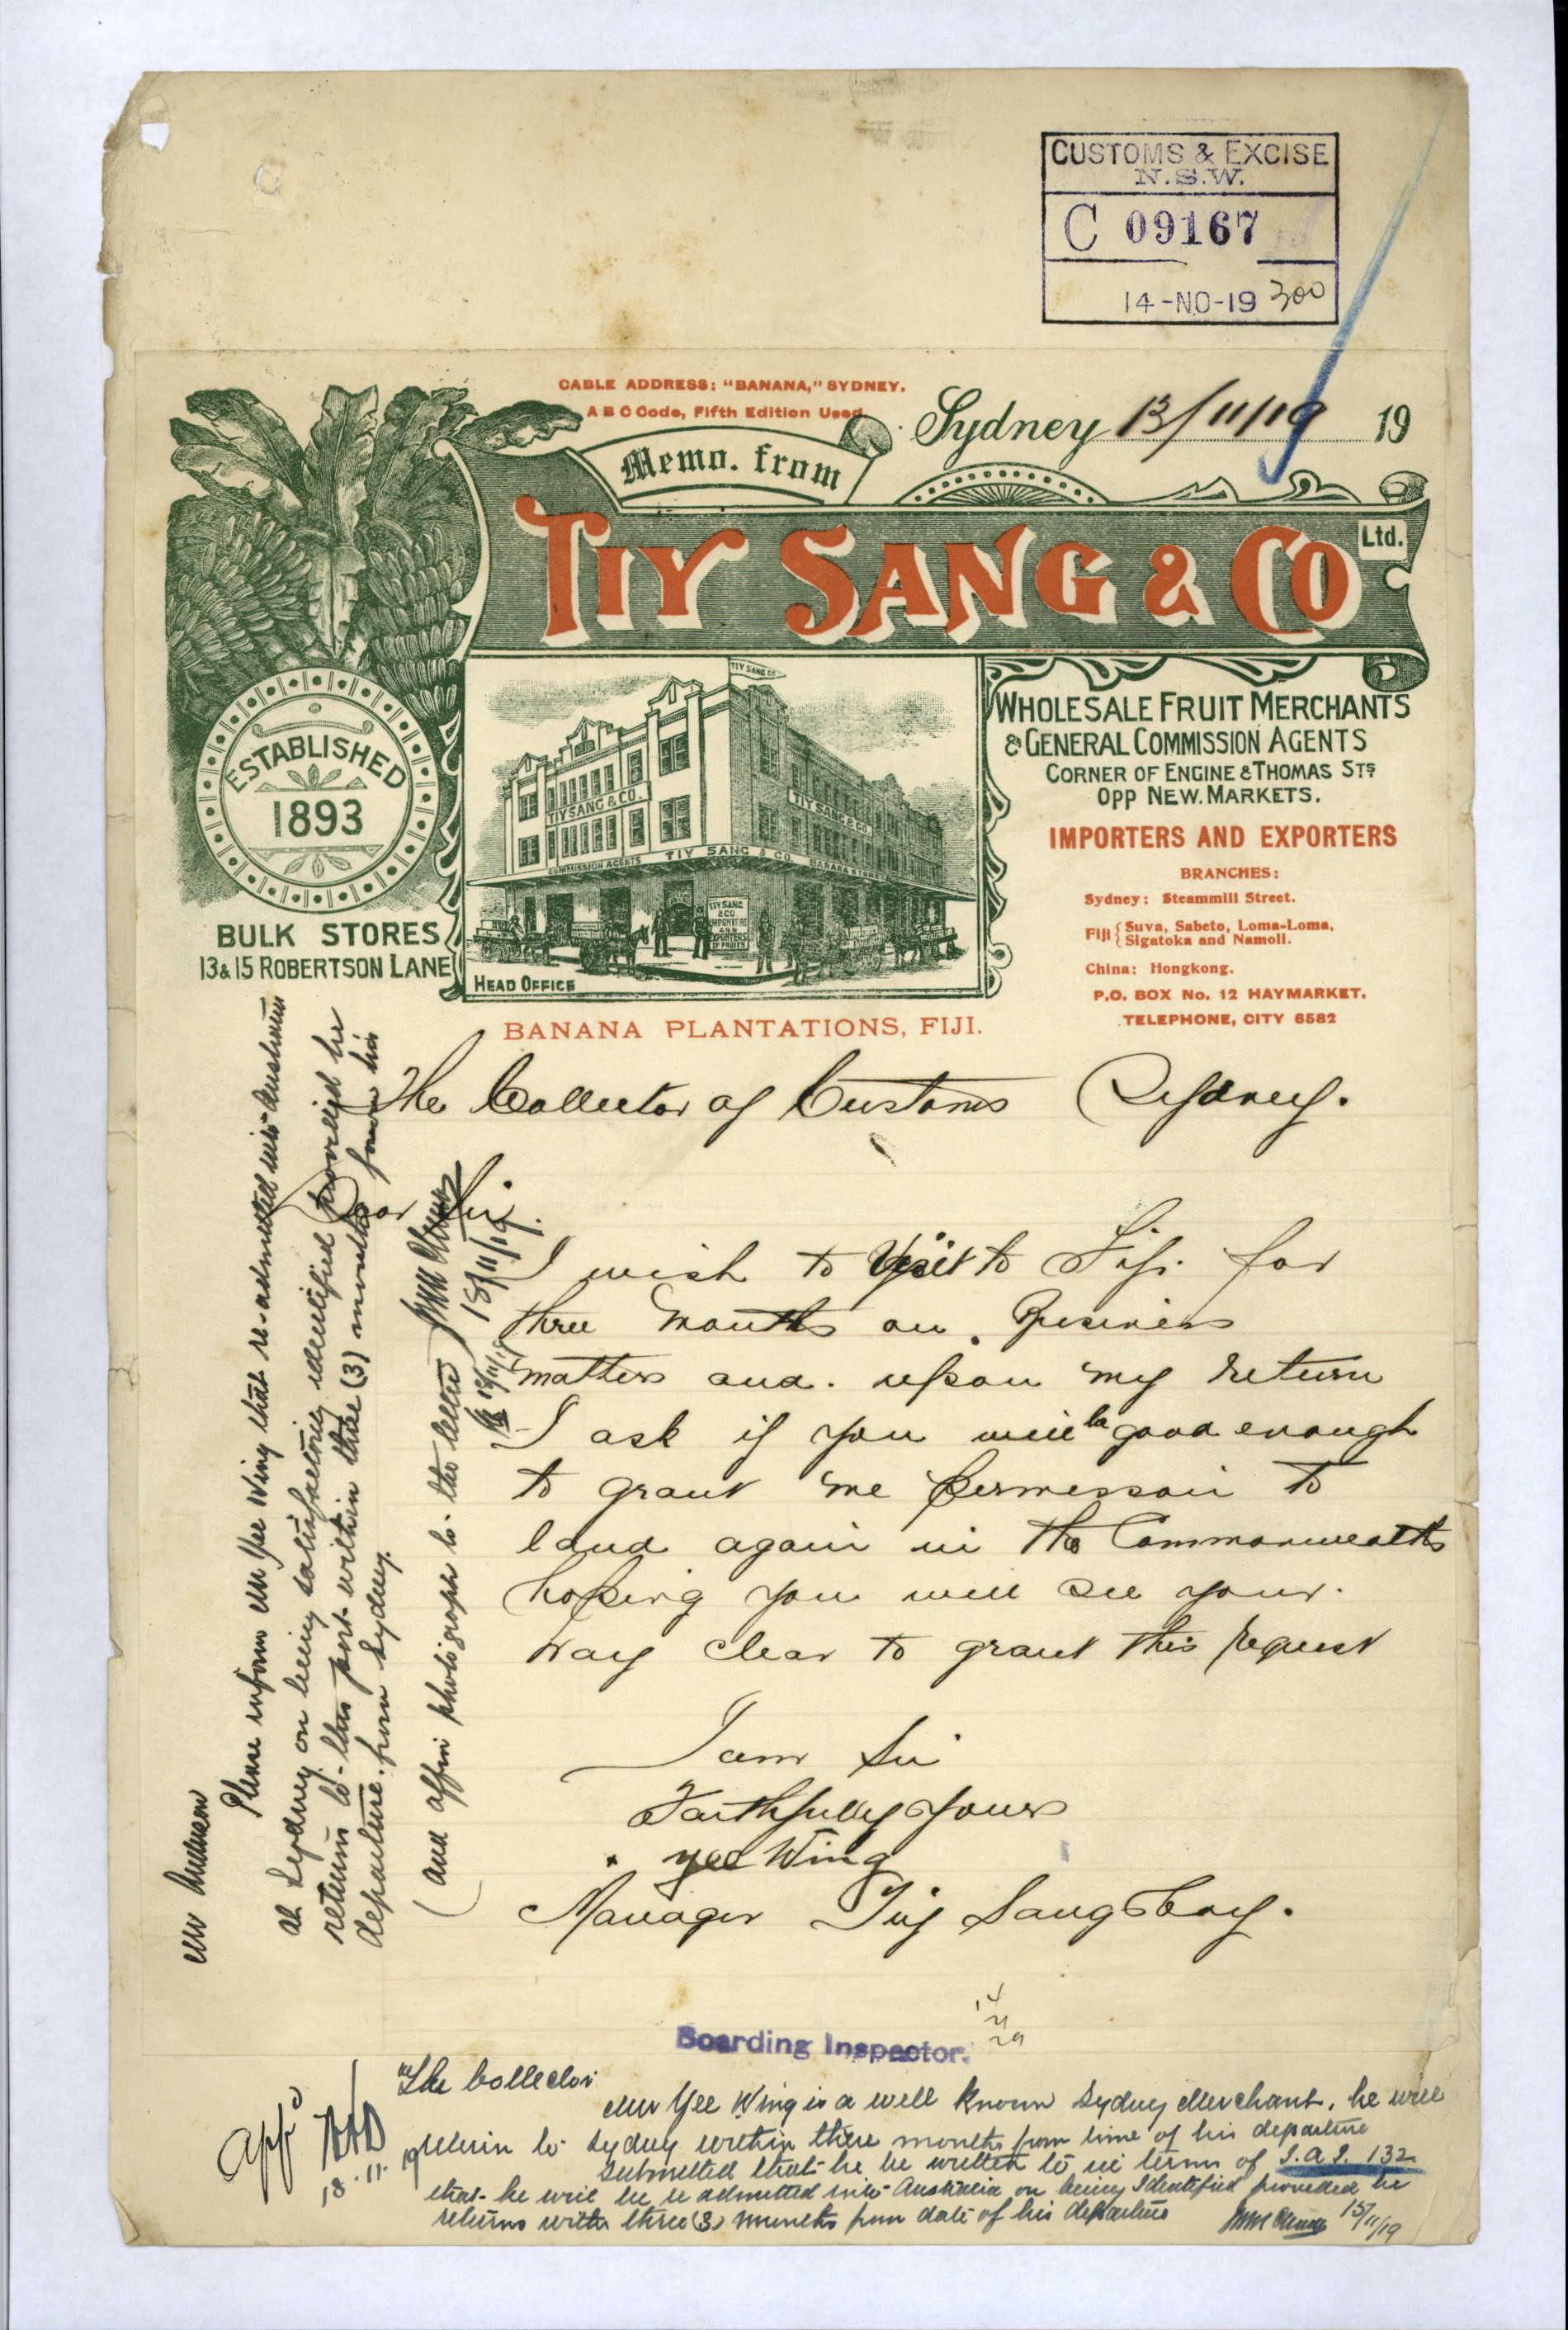 CUSTOMS & EXCISE
N.S.W.
C 09167
14-NO-19 300
CABLE ADDRESS: "BANANA," SYDNEY.
A B C Code, Fifth Edition Used
Sydney 13/11/19 19
Memo. from
TIY SANG & CO Ltd.
ESTABLISHED
1893
BULK STORES
13 & 15 ROBERTSON LANE
TIY SANG & CO
TIY SANG & CO.
TIY SANG & CO.
COMMISSION AGENTS TIY SANG & CO. BANANA STORES
TIY SANG
& CO
IMPORTERS
AND
EXPORTERS
OF FRUITS
HEAD OFFICE
WHOLESALE FRUIT MERCHANTS
& GENERAL COMMISSION AGENTS
CORNER OF ENGINE & THOMAS STS
OPP NEW. MARKETS.
IMPORTERS AND EXPORTERS
BRANCHES:
Sydney: Steammill Street.
Fiji { Suva, Sabeto, Loma-Loma,
Sigatoka and Namoli.
China: Hongkong.
P.O. BOX No. 12 HAYMARKET.
TELEPHONE, CITY 6582
BANANA PLANTATIONS, FIJI.
The Collector of Customs Sydney.
Dear Sir.
I wish to Visit to Fiji for
three months on Business
matters and. upon my return
I ask if you will be good enough
to grant me permession to
land again in the Commonwealth
hoping you will see your.
way clear to grant this request
I am Sir
Faithfully yours
Yee Wing
Manager Tiy Sang & Coy.
Mr
Please inform Mr Yee Wing that re-admitted into Australia
at Sydney on being satisfactorily identified provided he
returns to this port within three (3) months from his
departure from Sydney.
(and affix photograph to the letter)
18/11/19
Boarding Inspector.
The Collector
Mr Yee Wing is a well known Sydney Merchant, he will
return to Sydney within three months from time of his departure
Submitted that he be written to in terms of I.A.I. 132
that he will be re admitted into Australia on being Identified provided he
returns within three (3) months from date of his departure
15/11/19
App'd
18.11.19